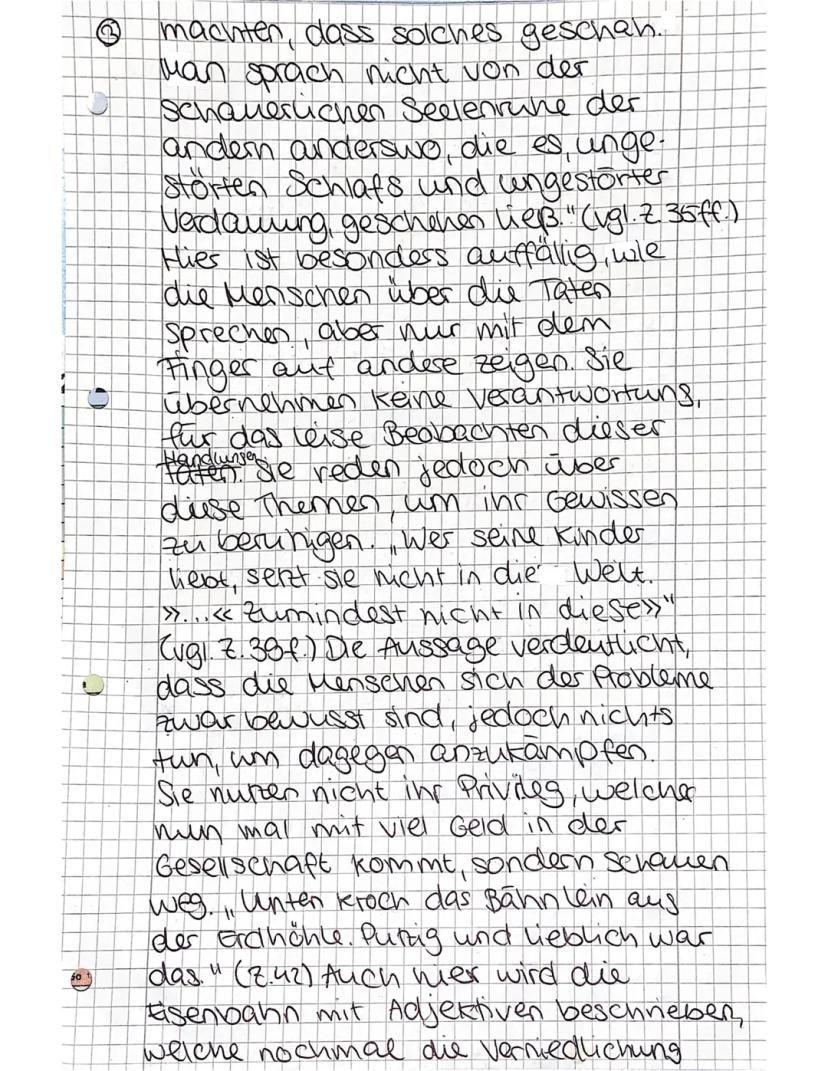 ③ machten, dass solches geschah.
Man sprach nicht von der
schauerlichen Seelenruhe der
andern anderswo, die es, unge-
störten Schlafs und ungestörter
Verdauung, geschehen ließ." (vgl. Z. 35ff.)
Hier ist besonders auffällig, wie
die Menschen über die Taten
sprechen, aber nur mit dem
Finger auf andere zeigen. Sie
übernehmen keine Verantwortung,
für das leise Beobachten dieser
Handlungen
Taten. Sie reden jedoch über
diese Themen, um ihr Gewissen
zu beruhigen. „Wer seine Kinder
liebt, setzt sie nicht in die Welt.
»...« Zumindest nicht in diese»"
(vgl. Z. 38f.) Die Aussage verdeutlicht,
dass die Menschen sich der Probleme
zwar bewusst sind, jedoch nichts
tun, um dagegen anzukämpfen.
Sie nutzen nicht ihr Privileg, welches
nun mal mit viel Geld in der
Gesellschaft kommt, sondern schauen
weg. „Unten kroch das Bähnlein aus
der Erdhöhle. Putzig und lieblich war
das." (Z.42) Auch hier wird die
Eisenbahn mit Adjektiven beschrieben,
welche nochmal die Verniedlichung